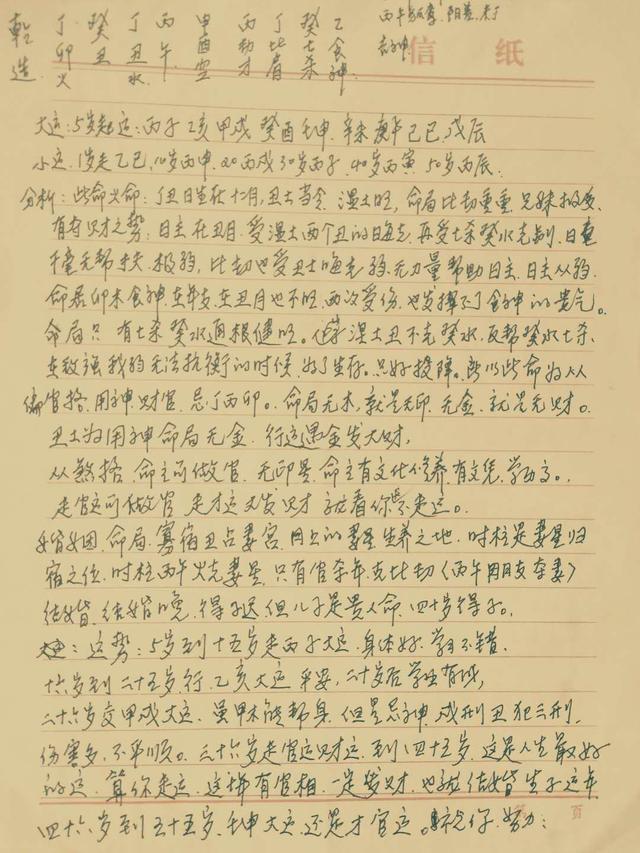 乾 丁 癸 丁 丙 甲 丙 丁 癸 乙
卯 丑 丑 午 酉 劫 比 七 食
造 火 水 空 才 肩 杀 神
信 纸
大运：5岁起运：丙子 乙亥 甲戌 癸酉 壬申 辛未 庚午 己巳 戊辰
小运 1岁走乙巳，10岁丙申 20丙戌 30岁丙子 40岁丙寅 50岁丙辰
分析：此命火命：丁丑日生在十二月，丑土当令 湿土旺，命局比劫重重 兄妹
有夺财之势：日主在丑月 受湿土两个丑的晦克 再受七杀癸水克制 日主
毫无帮扶 极弱，比劫也受丑土晦克 弱 无力量帮助日主 日主从弱
命局卯木食神 在年支 在丑月也不旺 两次受伤 也发挥不了食神的贵气。
命局只 有七杀癸水通根健旺。湿土丑不克癸水 反帮癸水七杀、
在敌强我弱无法抗衡的时候 为了生存。只好投降。所以此命为从
偏官格 用神财官 忌丁丙卯。命局无木，就是无印 无金 就是无财。
丑土为用神命局无金 行运遇金发大财，
从煞格 命主可做官 无印星 命主有文化修养 有文凭 学历高。
走官运可做官 走才运大发财 就看你怎走运。
婚姻 命局 寡宿丑占妻宫 月上的妻星生养之地 时柱是妻星归
宿之位 时柱丙午火克妻星 只有官杀年 克比劫（丙午月朋友夺妻）
结婚 结婚晚 得子迟 但儿子是贵人命 四十岁得子。
运势：5岁到十五岁走丙子大运 身体好 学习不错
十六岁到二十五岁行 乙亥大运 平安，二十岁后学业有成，
二十六岁交甲戌大运 虽甲木能帮身 但是忌神 戌刑丑犯三刑
伤害多 不平顺。三十六岁走官运财运 到四十五岁 这是人生最好
的运 算你走运 这步有官相 一定发财 也能结婚生子这年
四十六岁到五十五岁 壬申大运 还是才官运。祝你 努力：
页